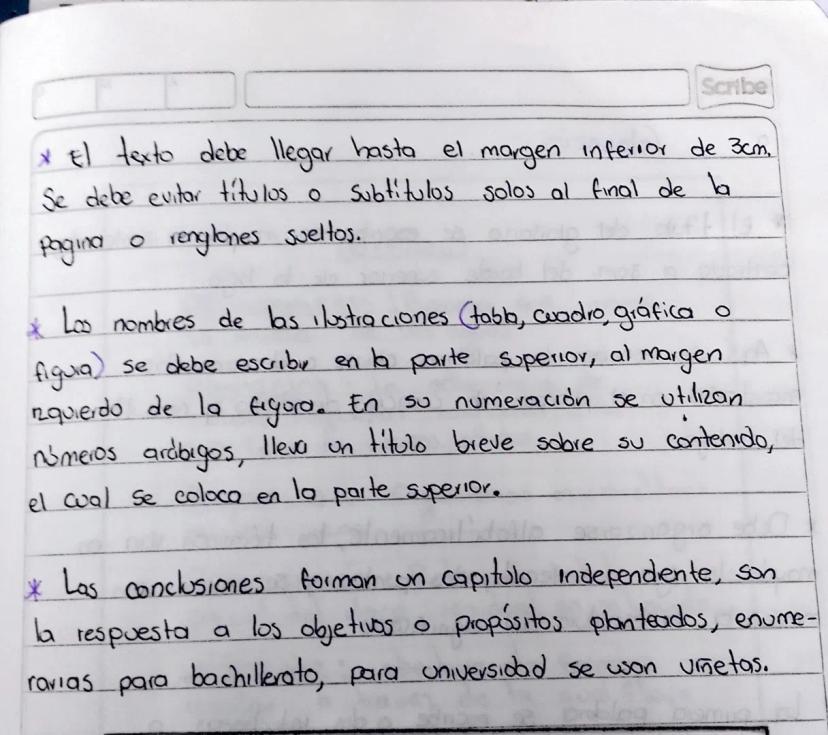 Scribe
* El texto debe llegar hasta el margen inferior de 3cm.
Se debe evitar títulos o subtítulos solos al final de la
pagina o renglones sueltos.
* Los nombres de las ilustraciones (tabla, cuadro, gráfica o
figura) se debe escribir en la parte superior, al margen
izquierdo de la figura. En su numeración se utilizan
números arábigos, lleva un título breve sobre su contenido,
el cual se coloca en la parte superior.
* Las conclusiones forman un capítulo independiente, son
la respuesta a los objetivos o propósitos planteados, enume-
rarlas para bachillerato, para universidad se usan viñetas.